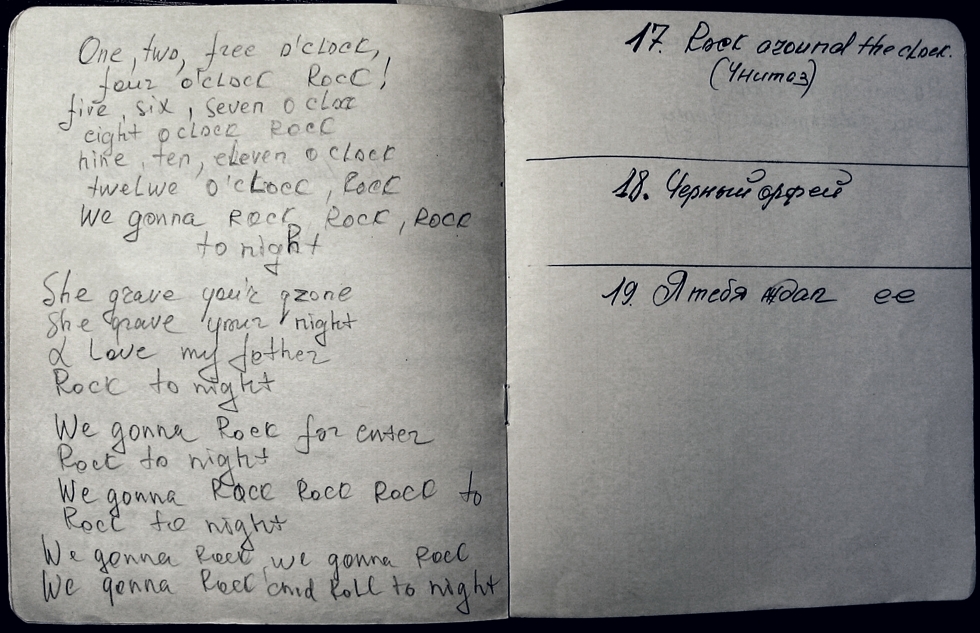 One, two, free o'clock,
four o'clock Rock!
five, six, seven o'cloc
eight o'clock Rock
nine, ten, eleven o'clock
twelwe o'clock, Rock
We gonna Rock, Rock, Rock
to night
She grave your grone
She grave your night
I Love my father
Rock to night
We gonna Rock for enter
Rock to night
We gonna Rock Rock Rock to
Rock to night
We gonna Rock, we gonna Rock
We gonna Rock and Roll to night
17. Rock around the clock.
(Унитаз)
18. Черный орфей
19. Я тебя ждал ее